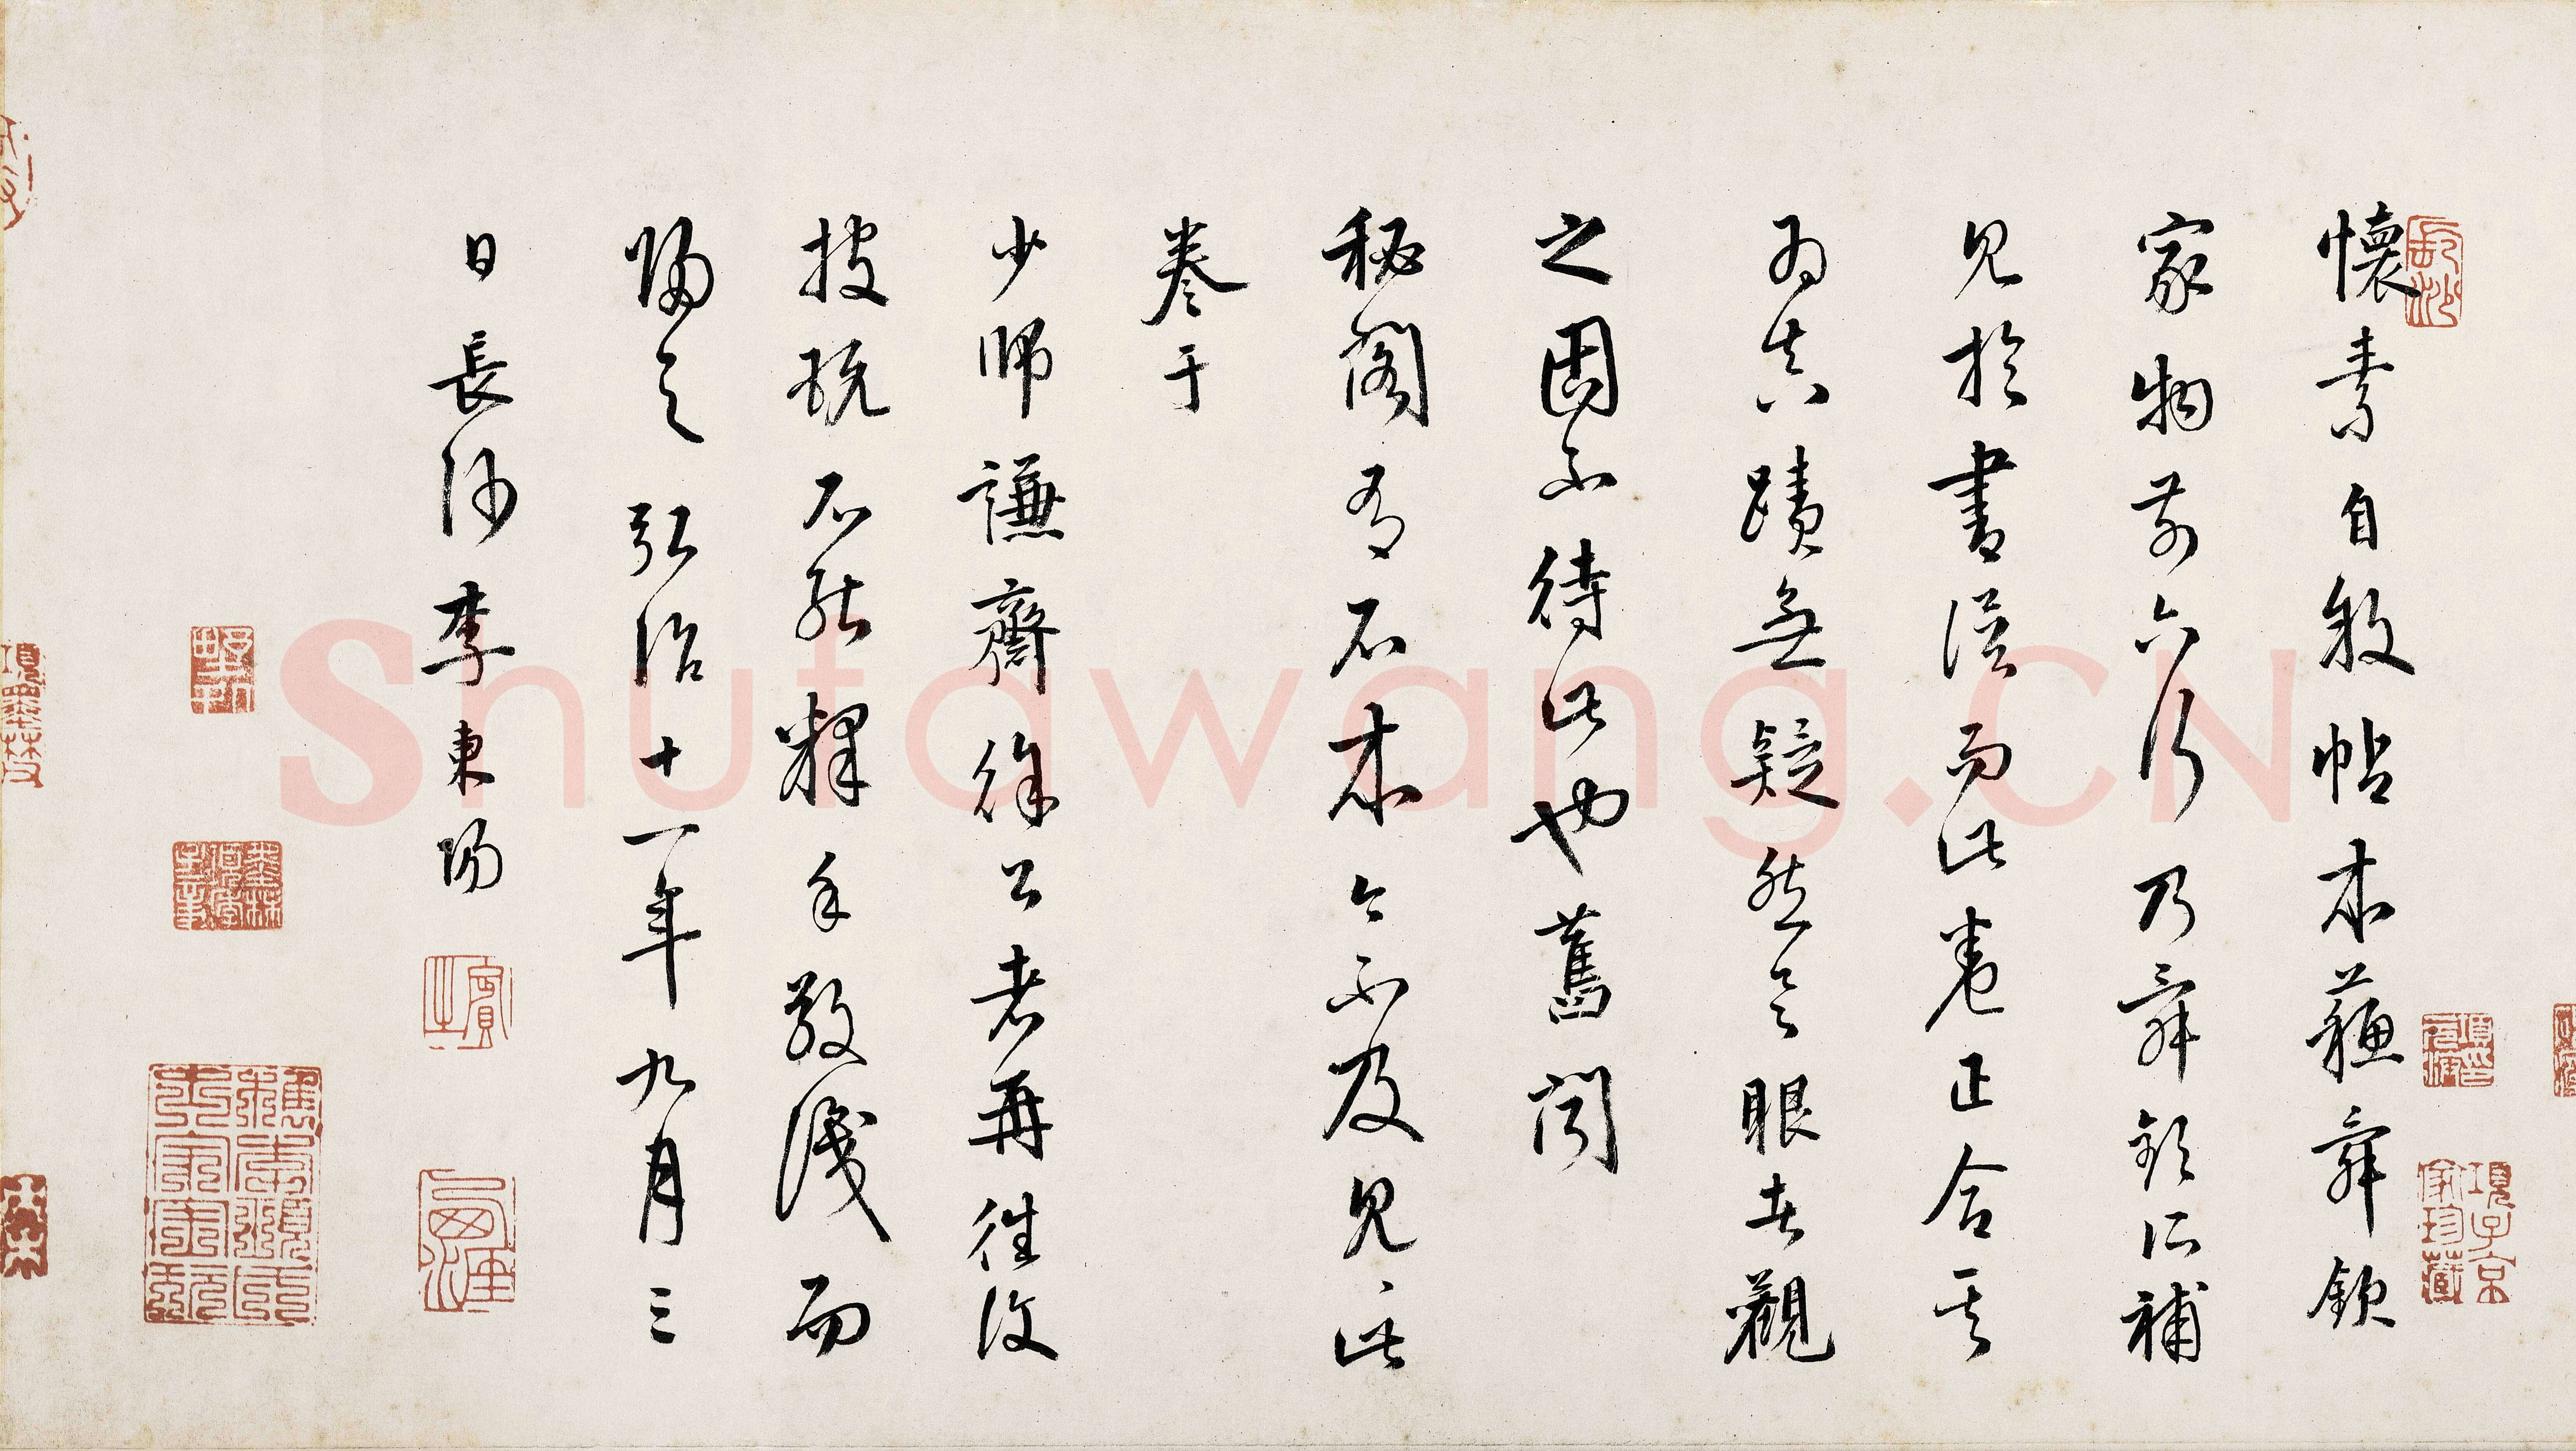 懷素自敘帖本蘇舜欽
家物前六行乃舜欽所補
見於書譜而此卷正合其
為真蹟無疑然具眼者觀
之固不待此也舊聞
秘閣有石本今不及見此
卷于
少師謙齋徐公老再往復
披玩不能釋手敬識而
歸之弘治十一年九月三
日長沙李東陽
賓之
項子京
家珍藏
Shufawang.CN